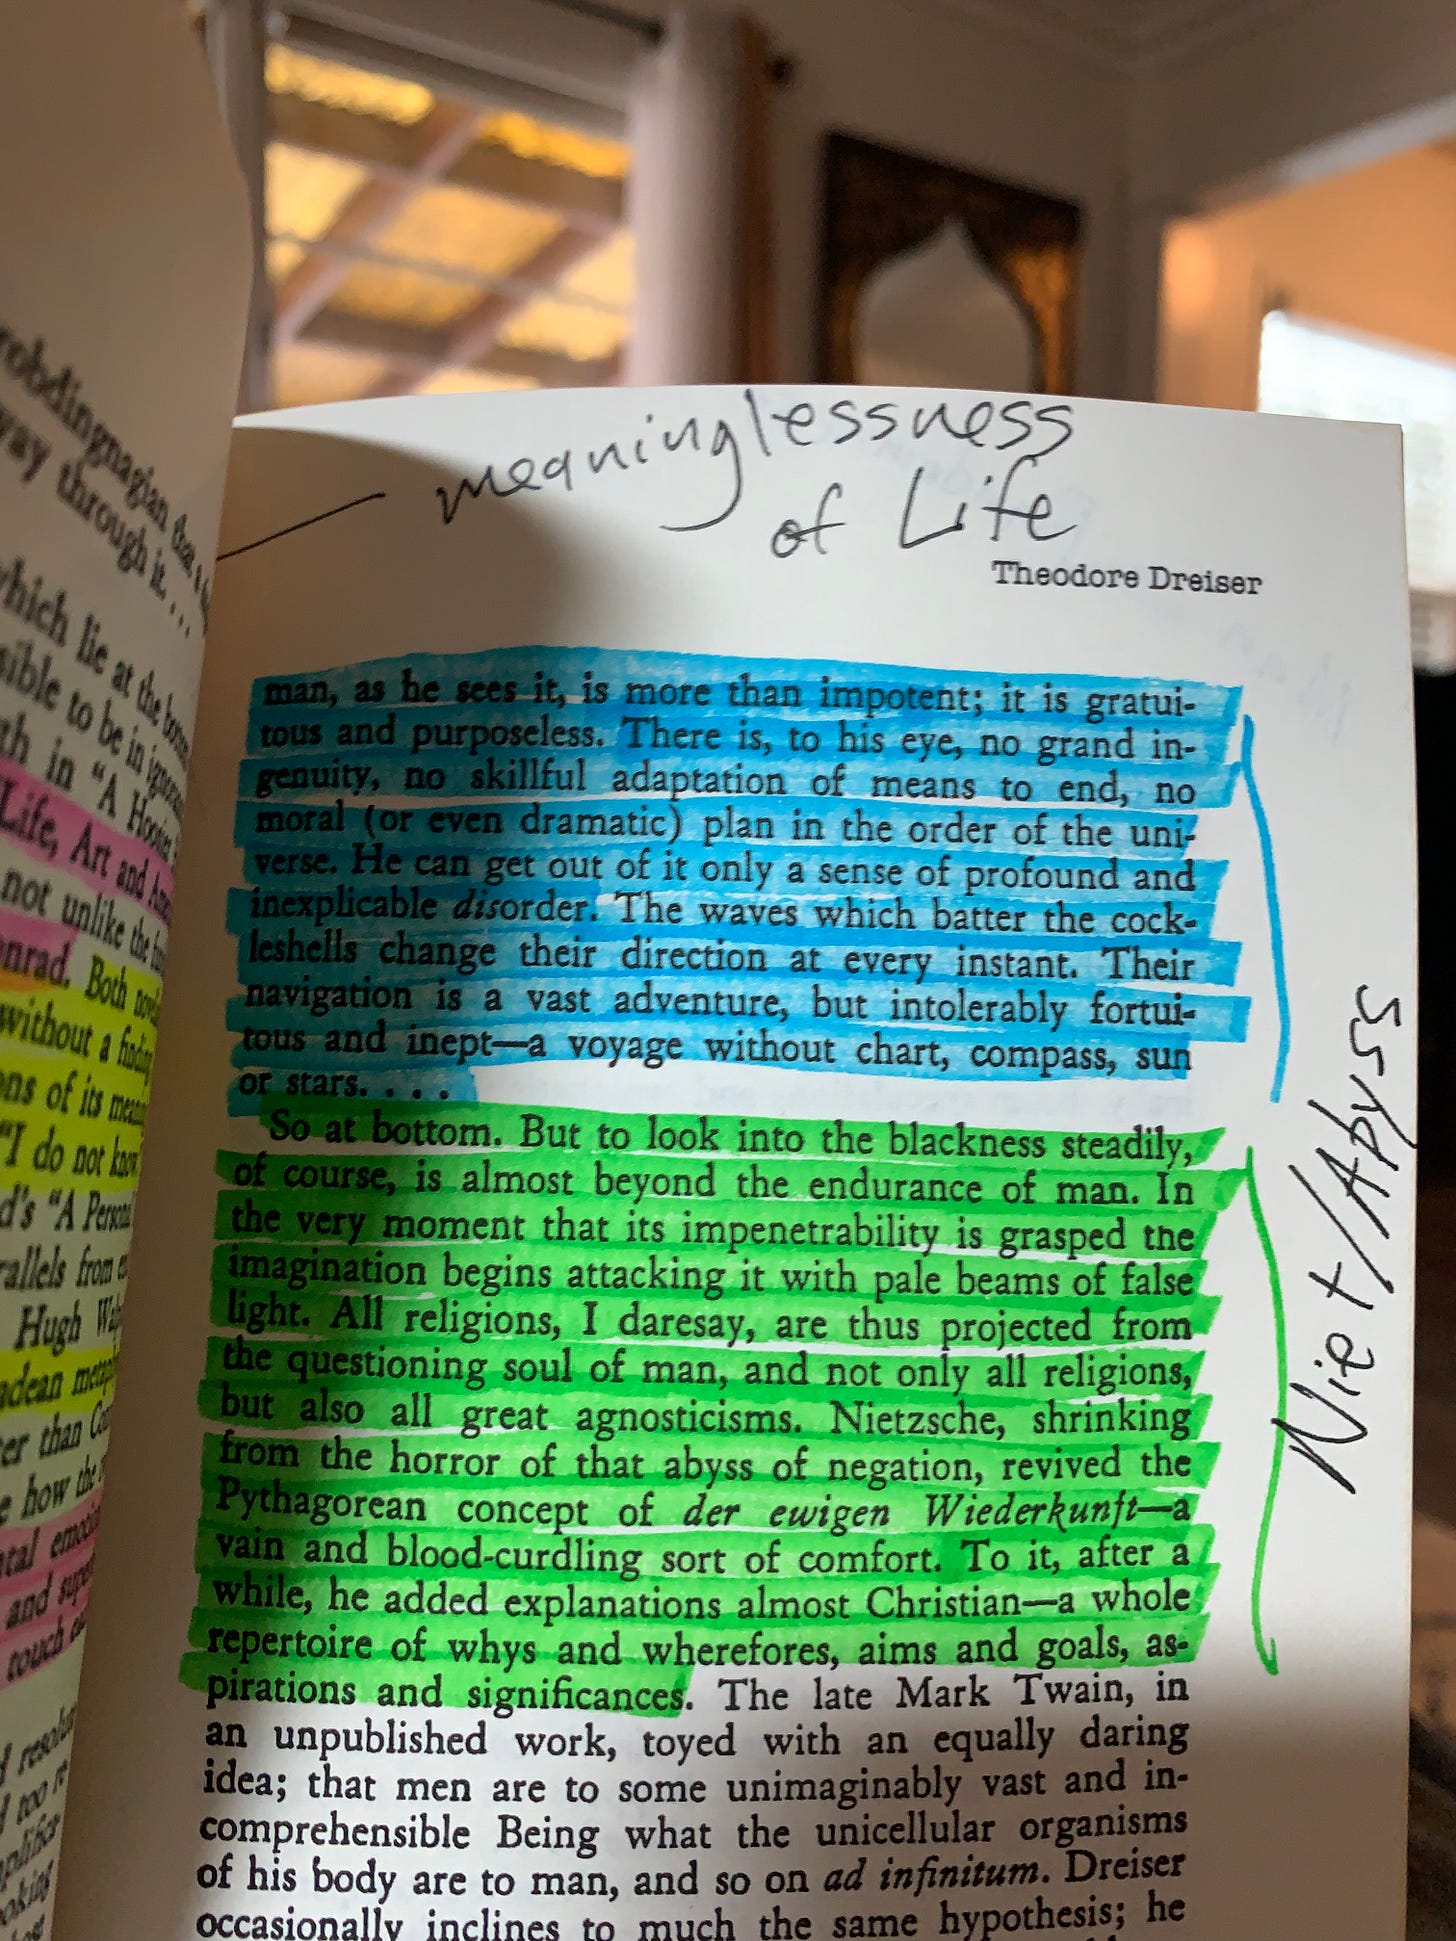 robdingnagian that a
way through it. . . .
which lie at the
sible to be in
in "A
Life, Art and
not unlike the
nrad. Both
without a finding
ons of its
"I do not know
d's "A
rallels from
Hugh
adean
er than
e how the
and
touch
resolu
too
meaninglessness
of Life
Theodore Dreiser
man, as he sees it, is more than impotent; it is gratui-
tous and purposeless. There is, to his eye, no grand in-
genuity, no skillful adaptation of means to end, no
moral (or even dramatic) plan in the order of the uni-
verse. He can get out of it only a sense of profound and
inexplicable disorder. The waves which batter the cock-
leshells change their direction at every instant. Their
navigation is a vast adventure, but intolerably fortui-
tous and inept—a voyage without chart, compass, sun
or stars. . . .
So at bottom. But to look into the blackness steadily,
of course, is almost beyond the endurance of man. In
the very moment that its impenetrability is grasped the
imagination begins attacking it with pale beams of false
light. All religions, I daresay, are thus projected from
the questioning soul of man, and not only all religions,
but also all great agnosticisms. Nietzsche, shrinking
from the horror of that abyss of negation, revived the
Pythagorean concept of der ewigen Wiederkunft—a
vain and blood-curdling sort of comfort. To it, after a
while, he added explanations almost Christian—a whole
repertoire of whys and wherefores, aims and goals, as-
pirations and significances. The late Mark Twain, in
an unpublished work, toyed with an equally daring
idea; that men are to some unimaginably vast and in-
comprehensible Being what the unicellular organisms
of his body are to man, and so on ad infinitum. Dreiser
occasionally inclines to much the same hypothesis; he
Niet/Abyss